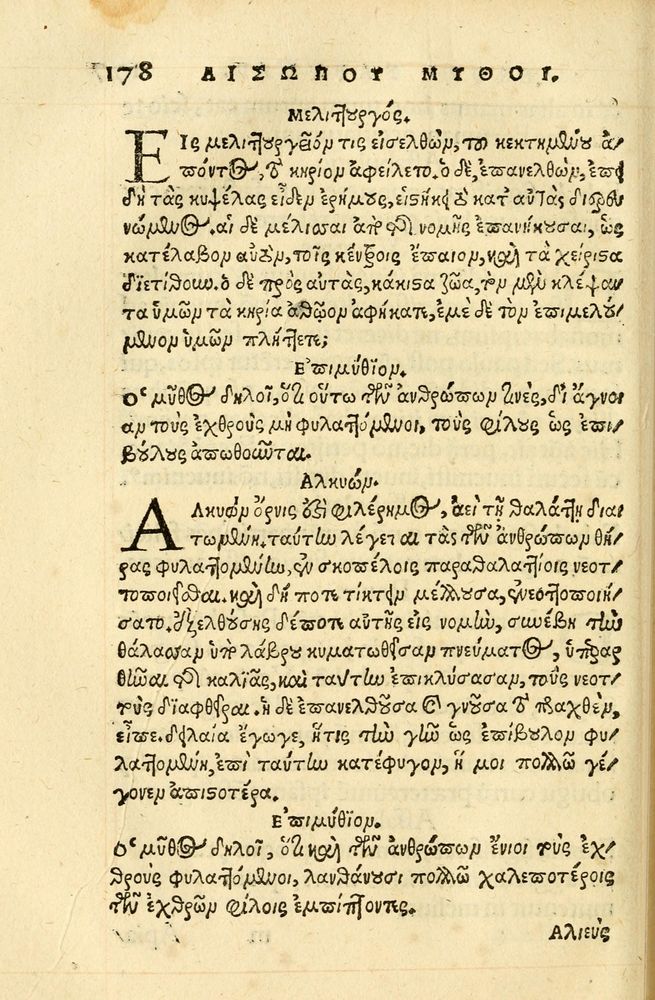 178 ΑΙΣΩΠΟΥ ΜΥΘΟΙ.
Μελιτουργός.
ΕΙς μελιτουργεῖόν τις εἰσελθὼν, τοῦ κεκτημένου ἀ-
πόντος, τὸ κηρίον ἀφείλετο. ὁ δὲ, ἐπανελθὼν, ἐπει-
δὴ τὰς κυψέλας εἶδεν ἐρήμους, εἱστήκει τὸ κατ' αὐτὰς διερευ-
νώμενος. αἱ δὲ μέλισσαι ἀπὸ τῆς νομῆς ἐπανήκουσαι, ὡς
κατέλαβον αὐτὸν, τοῖς κέντροις ἔπαιον, καὶ τὰ χείριστα
διετίθουν. ὁ δὲ πρὸς αὐτὰς, κάκιστα ζῶα, τὸν μὲν κλέψαν-
τα ὑμῶν τὰ κηρία ἀθῶον ἀφήκατε, ἐμὲ δὲ τὸν ἐπιμελού-
μενον ὑμῶν πλήττετε;
Ἐπιμύθιον.
Ὁ μῦθος δηλοῖ, ὅτι οὕτω τῶν ἀνθρώπων τινὲς, δι' ἄγνοι-
αν τοὺς ἐχθροὺς μὴ φυλαττόμενοι, τοὺς φίλους ὡς ἐπι-
βούλους ἀπωθοῦνται.
Ἀλκυών.
ΑΛκυὼν ὄρνις ἐστὶ φιλέρημος, ἀεὶ τῇ θαλάττῃ διαι-
τωμένη. ταύτην λέγεται τὰς τῶν ἀνθρώπων θή-
ρας φυλαττομένην, ἐν σκοπέλοις παραθαλαττίοις νεοτ-
τοποιεῖσθαι. καὶ δή ποτε τίκτειν μέλλουσα, ἐνεοττοποιή-
σατο. ἐξελθούσης δέ ποτε αὐτῆς εἰς νομὴν, συνέβη τὴν
θάλασσαν ὑπὸ λάβρου κυματωθεῖσαν πνεύματος, ὑπεραρ-
θῆναι τῆς καλιᾶς, καὶ ταύτην ἐπικλύσασαν, τοὺς νεοτ-
τοὺς διαφθεῖραι. ἡ δὲ ἐπανελθοῦσα καὶ γνοῦσα τὸ πραχθὲν,
εἶπε. δειλαία ἔγωγε, ἥτις τὴν γῆν ὡς ἐπίβουλον φυ-
λαττομένη, ἐπὶ ταύτην κατέφυγον, ἥ μοι πολλῷ γέ-
γονεν ἀπιστοτέρα.
Ἐπιμύθιον.
Ὁ μῦθος δηλοῖ, ὅτι καὶ τῶν ἀνθρώπων ἔνιοι τοὺς ἐχ-
θροὺς φυλαττόμενοι, λανθάνουσι πολλῷ χαλεποτέροις
τῶν ἐχθρῶν φίλοις ἐμπίπτοντες.
Ἁλιεὺς